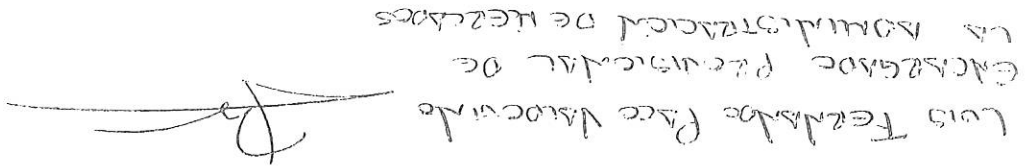 LUIS FERNANDO PAEZ VALDOVINO
ENCARGADO PROVISIONAL DE
LA ADMINISTRACIÓN DE MERCADOS